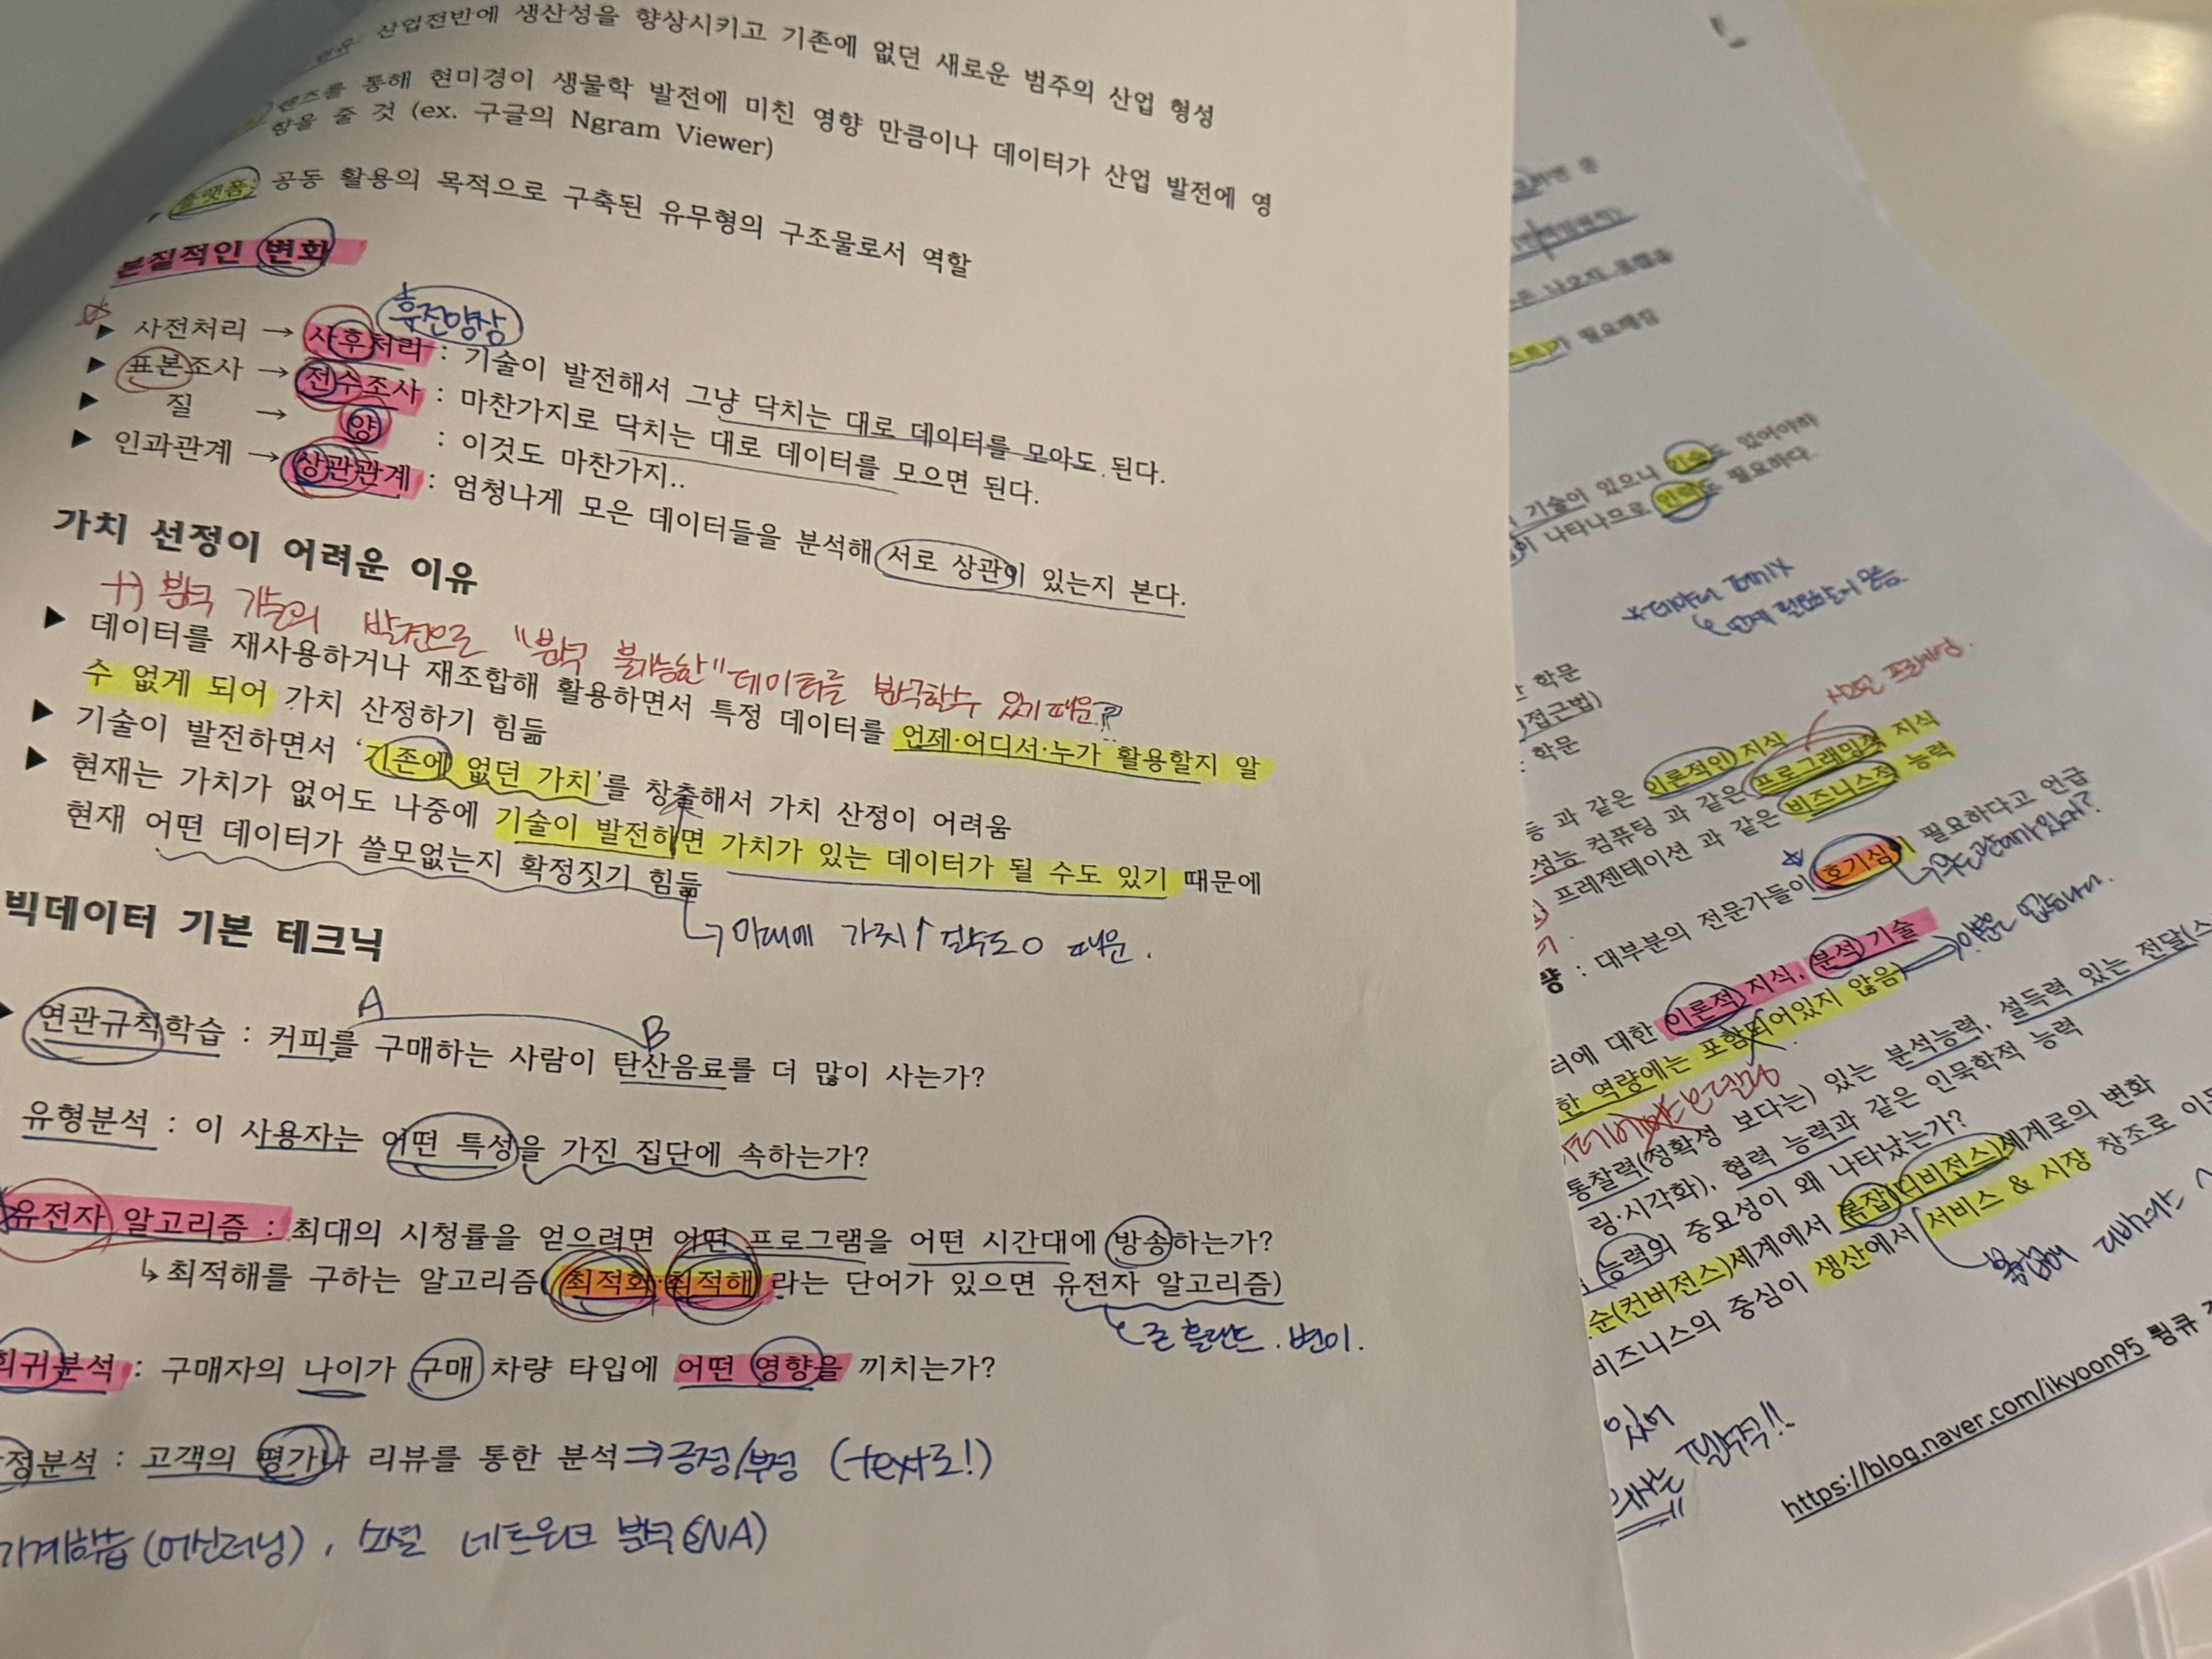 산업전반에 생산성을 향상시키고 기존에 없던 새로운 범주의 산업 형성
렌즈를 통해 현미경이 생물학 발전에 미친 영향 만큼이나 데이터가 산업 발전에 영
향을 줄 것 (ex. 구글의 Ngram Viewer)
플랫폼: 공동 활용의 목적으로 구축된 유무형의 구조물로서 역할
본질적인 변화
▶ 사전처리 → 사후처리 : 기술이 발전해서 그냥 닥치는 대로 데이터를 모아도 된다.
▶ 표본조사 → 전수조사 : 마찬가지로 닥치는 대로 데이터를 모으면 된다.
▶ 질 → 양 : 이것도 마찬가지..
▶ 인과관계 → 상관관계 : 엄청나게 모은 데이터들을 분석해 서로 상관이 있는지 본다.
가치 선정이 어려운 이유
+) 분석 기술의 발전으로 "분석 불가능한" 데이터를 분석할수 있기 때문?
▶ 데이터를 재사용하거나 재조합해 활용하면서 특정 데이터를 언제·어디서·누가 활용할지 알
수 없게 되어 가치 산정하기 힘듦
▶ 기술이 발전하면서 '기존에 없던 가치'를 창출해서 가치 산정이 어려움
▶ 현재는 가치가 없어도 나중에 기술이 발전하면 가치가 있는 데이터가 될 수도 있기 때문에
현재 어떤 데이터가 쓸모없는지 확정짓기 힘듦
↳ 미래에 가치↑ 때문.
빅데이터 기본 테크닉
A B
연관규칙학습 : 커피를 구매하는 사람이 탄산음료를 더 많이 사는가?
유형분석 : 이 사용자는 어떤 특성을 가진 집단에 속하는가?
유전자 알고리즘 : 최대의 시청률을 얻으려면 어떤 프로그램을 어떤 시간대에 방송하는가?
↳ 최적해를 구하는 알고리즘(최적화·최적해 라는 단어가 있으면 유전자 알고리즘)
변이.
회귀분석 : 구매자의 나이가 구매 차량 타입에 어떤 영향을 끼치는가?
정분석 : 고객의 평가나 리뷰를 통한 분석 ⇒ 긍정/부정 (text로!)
기계학습(머신러닝), 소셜 네트워크 분석(SNA)
필요해짐
기술도 있어야하
기술이 있으니
이 나타나므로 인력도 필요하다.
학문
접근법)
학문
과 같은 이론적인 지식
성능 컴퓨팅 과 같은 프로그래밍적 지식
프레젠테이션 과 같은 비즈니스적 능력
: 대부분의 전문가들이 호기심이 필요하다고 언급
터에 대한 이론적 지식, 분석 기술
한 역량에는 포함되어있지 않음)
통찰력(정확성 보다는) 있는 분석능력, 설득력 있는 전달(스
링·시각화), 협력 능력과 같은 인문학적 능력
능력의 중요성이 왜 나타났는가?
순(컨버전스)세계에서 복잡(디비전스)세계로의 변화
비즈니스의 중심이 생산에서 서비스 & 시장 창조로 이동
있어
필수적!!
https://blog.naver.com/ikyoon95 륑큐